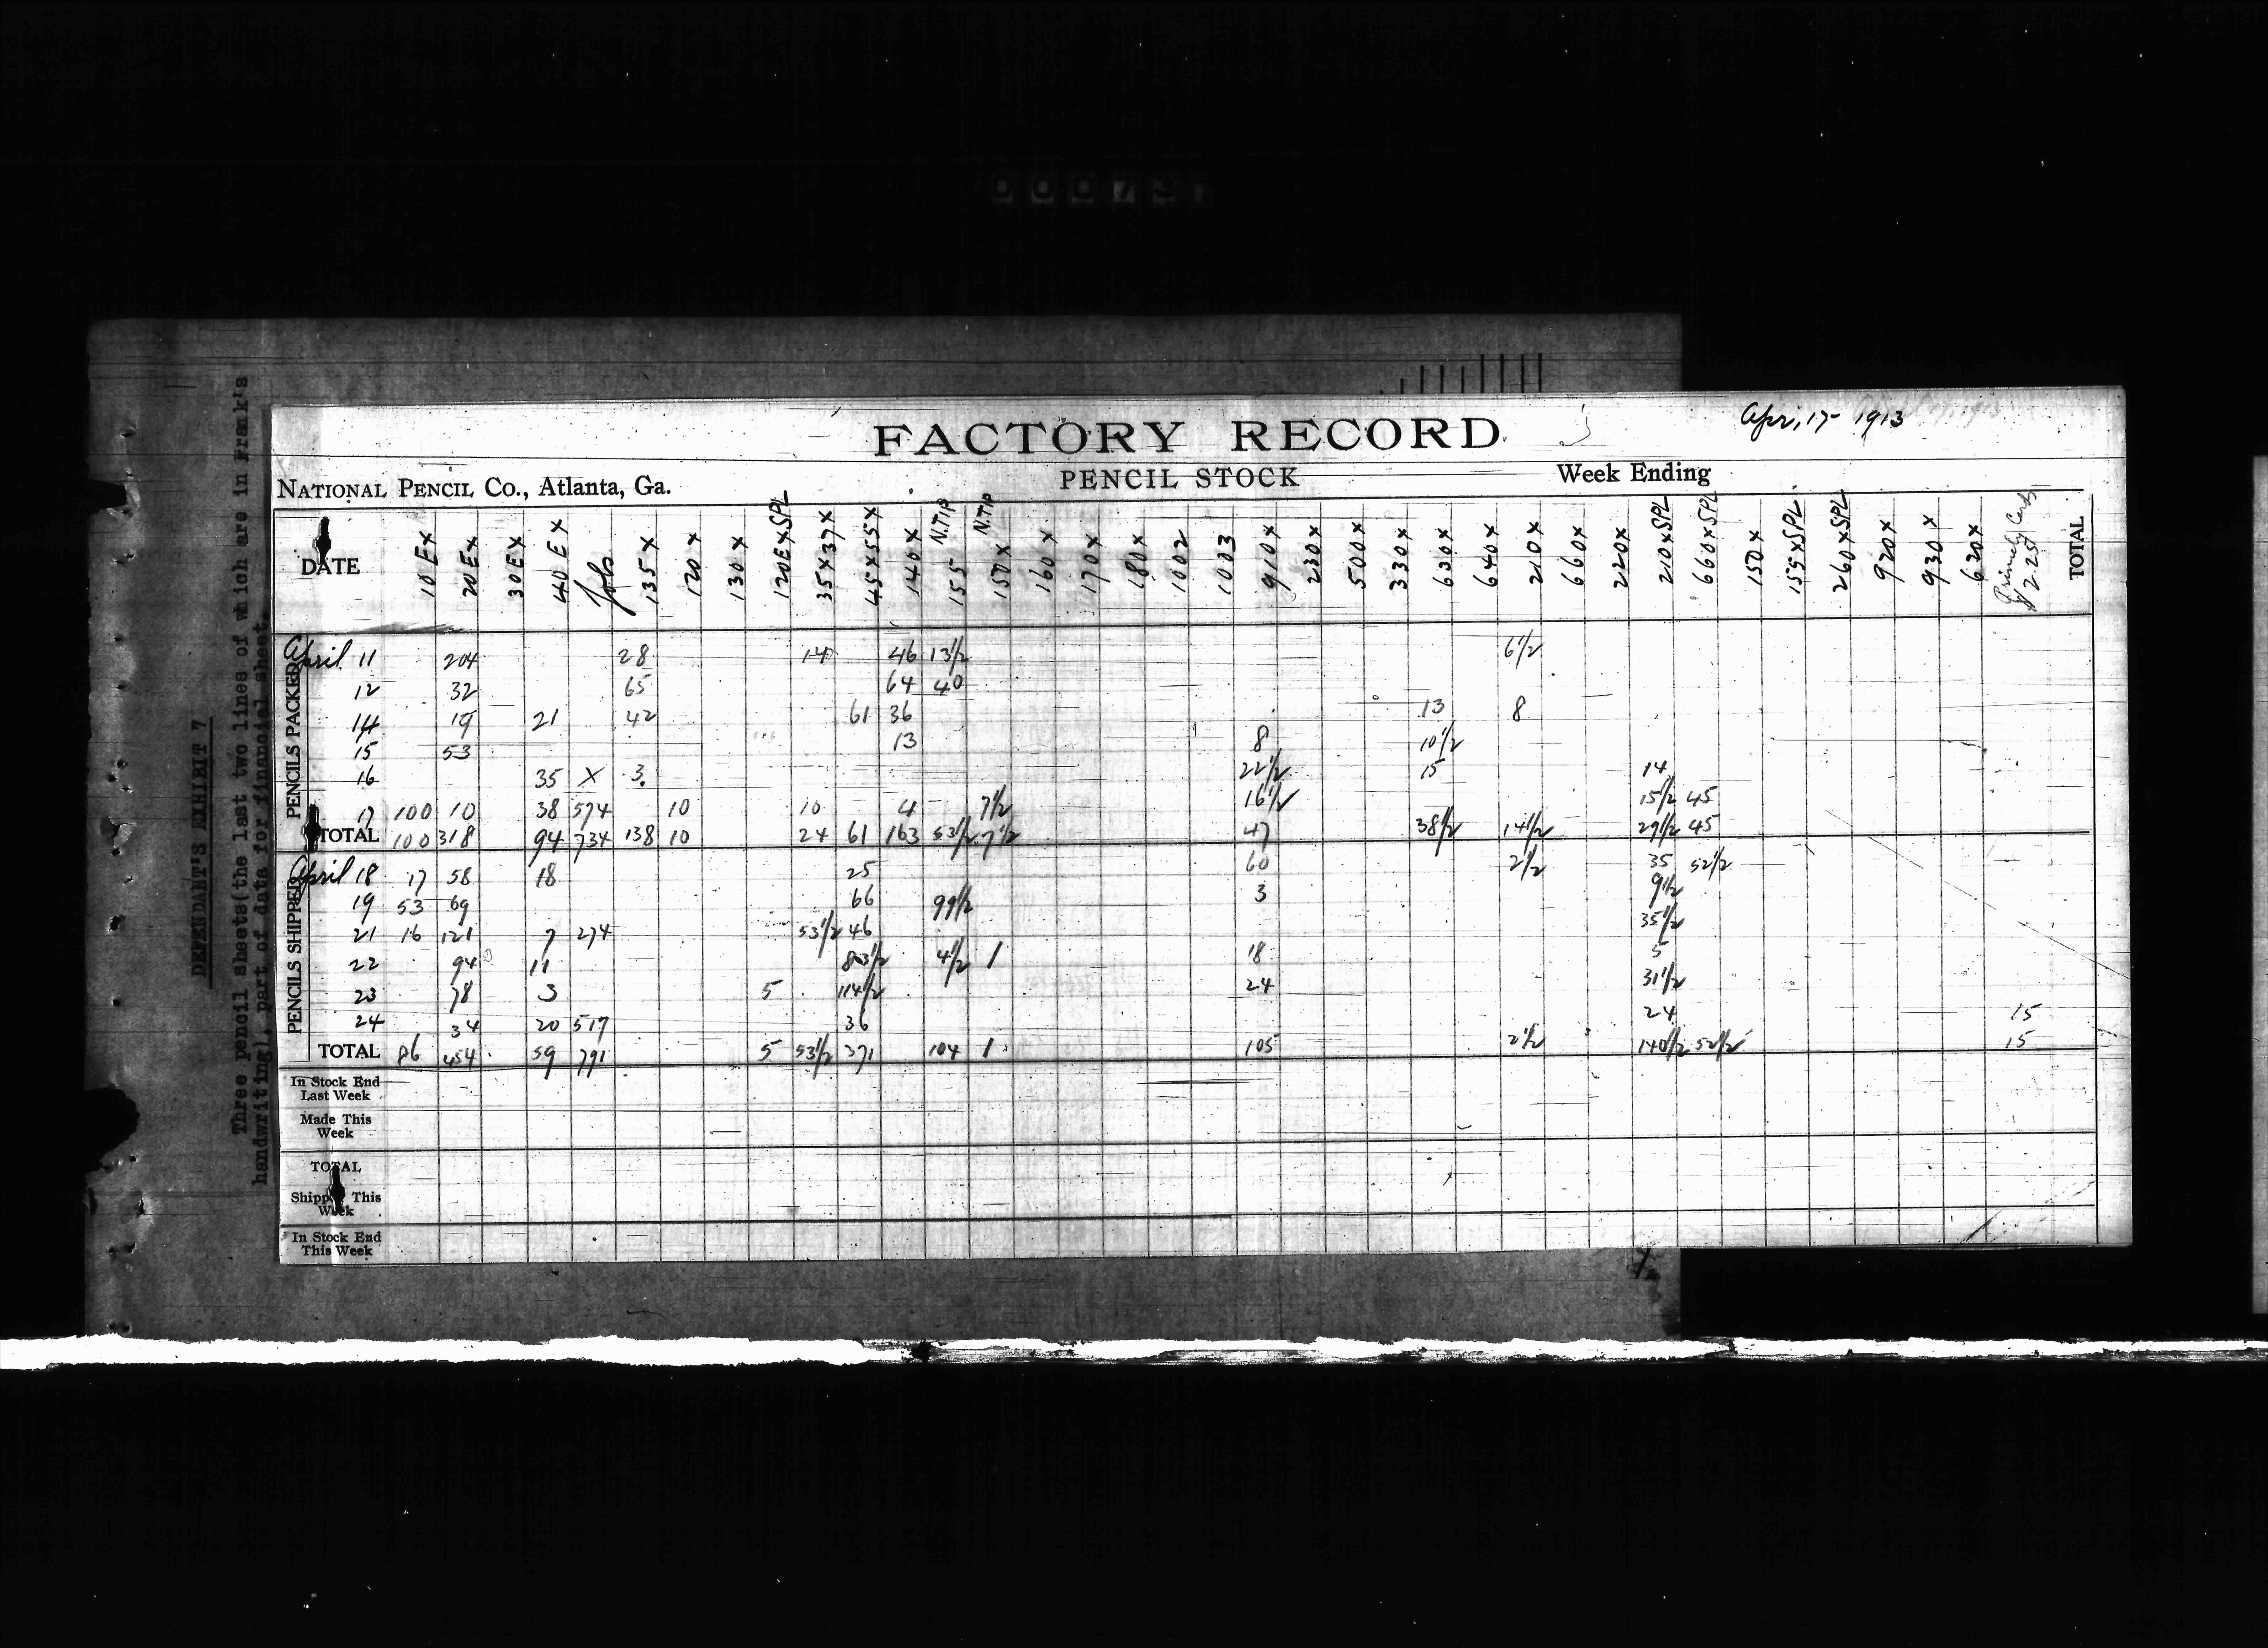 000737
DEFENDANT'S EXHIBIT 7
Three pencil sheets(the last two lines of which are in Frank's
handwriting), part of data for financial sheet.
Apr, 17- 1913
FACTORY RECORD
NATIONAL PENCIL CO., Atlanta, Ga. PENCIL STOCK Week Ending
DATE 10 EX 20 EX 30 EX 40 EX Jobs 135 X 120 X 130 X 120EXSPL 35X37X 45X55X 140X 155 N.TIP 150X N.TIP 160X 170X 180X 1002 1003 910X 230X 500X 330X 630X 640X 210X 660X 220X 210XSPL 660XSPL 150X 155XSPL 260XSPL 920X 930X 620X $2.25 TOTAL
PENCILS PACKED
April 11 204 28 14 46 13½ 6½
12 32 65 64 40
14 19 21 42 61 36 13 8
15 53 13 8 10½
16 35 X 3 22½ 15 14
17 100 10 38 574 10 10 4 7½ 16½ 15½ 45
TOTAL 100 318 94 734 138 10 24 61 163 53½ 7½ 47 38½ 14½ 29½ 45
PENCILS SHIPPED
April 18 17 58 18 25 60 2½ 35 52½
19 53 69 66 99½ 3 9½
21 16 121 7 274 53½ 46 35½
22 94 11 83½ 4½ 1 18 5
23 78 3 5 114½ 24 31½
24 34 20 517 36 24 15
TOTAL 86 454 59 791 5 53½ 371 104 1 105 2½ 140½ 52½ 15
In Stock End
Last Week
Made This
Week
TOTAL
Shipped This
Week
In Stock End
This Week